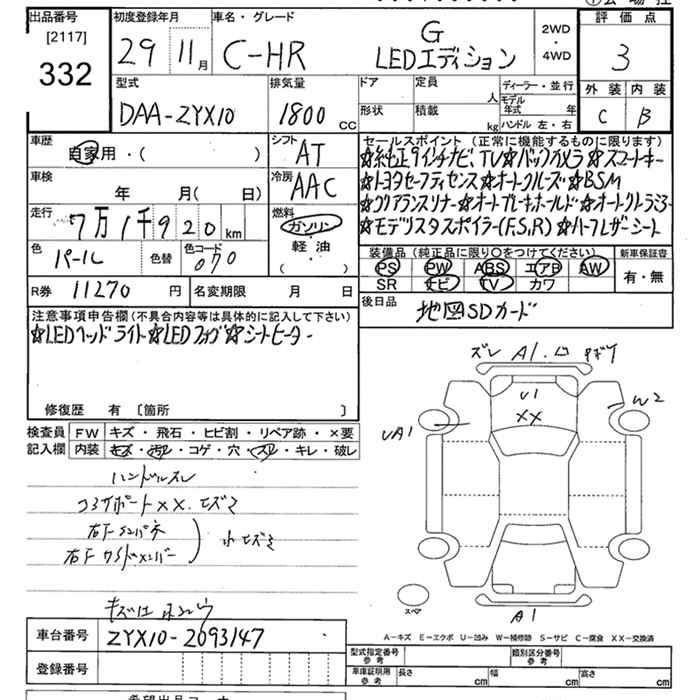 出品番号
[2117]
332
初度登録年月
29 11月
車名・グレード
C-HR
G
LEDエディション
2WD
・
4WD
評価点
3
外装 内装
C B
型式
DAA-ZYX10
排気量
1800 CC
ドア
定員
人
形状
積載
kg
ディーラー・並行
モデル年式 年
ハンドル 左・右
車歴
自家用・( )
シフト
AT
車検
年 月( 日)
冷房
AAC
走行
7万1千920km
燃料
ガソリン
軽油
( )
色
パール
色替
色コード
070
R券 11270 円
名変期限 月 日
セールスポイント (正常に機能するものに限ります)
☆純正9インチナビ、TV☆バックカメラ☆スマートキー
☆トヨタセーフティセンス☆オートクルーズ☆BSM
☆クリアランスソナー☆オートブレーキホールド☆オートクトラミラー
☆モデリスタスポイラー(F,S,R)☆ハーフレザーシート
装備品(純正品に限り○をつけてください)
PS PW ABS エアB AW
SR ナビ TV カワ
新車保証書
有・無
後日品
地図SDカード
注意事項申告欄(不具合内容等は具体的に記入して下さい)
☆LEDヘッドライト☆LEDフォグ☆シートヒーター
修復歴 有 〔箇所 〕
検査員記入欄
FW キズ・飛石・ヒビ割・リペア跡・×要
内装 キズ・汚レ・コゲ・穴・スレ・キレ・破レ
ハンドルスレ
コアサポートXX.ヒズミ
右F
右F
小ヒズミ
キズ
ズレ A1.凹
U1
XX
W2
UA1
スペア
A1
A-キズ E-エクボ U-凹み W-補修跡 S-サビ C-腐食 XX-交換済
車台番号 ZYX10-2093147
登録番号
型式指定番号
参考
類別区分番号
参考
車庫証明用
参考
長さ cm 幅 cm 高さ cm